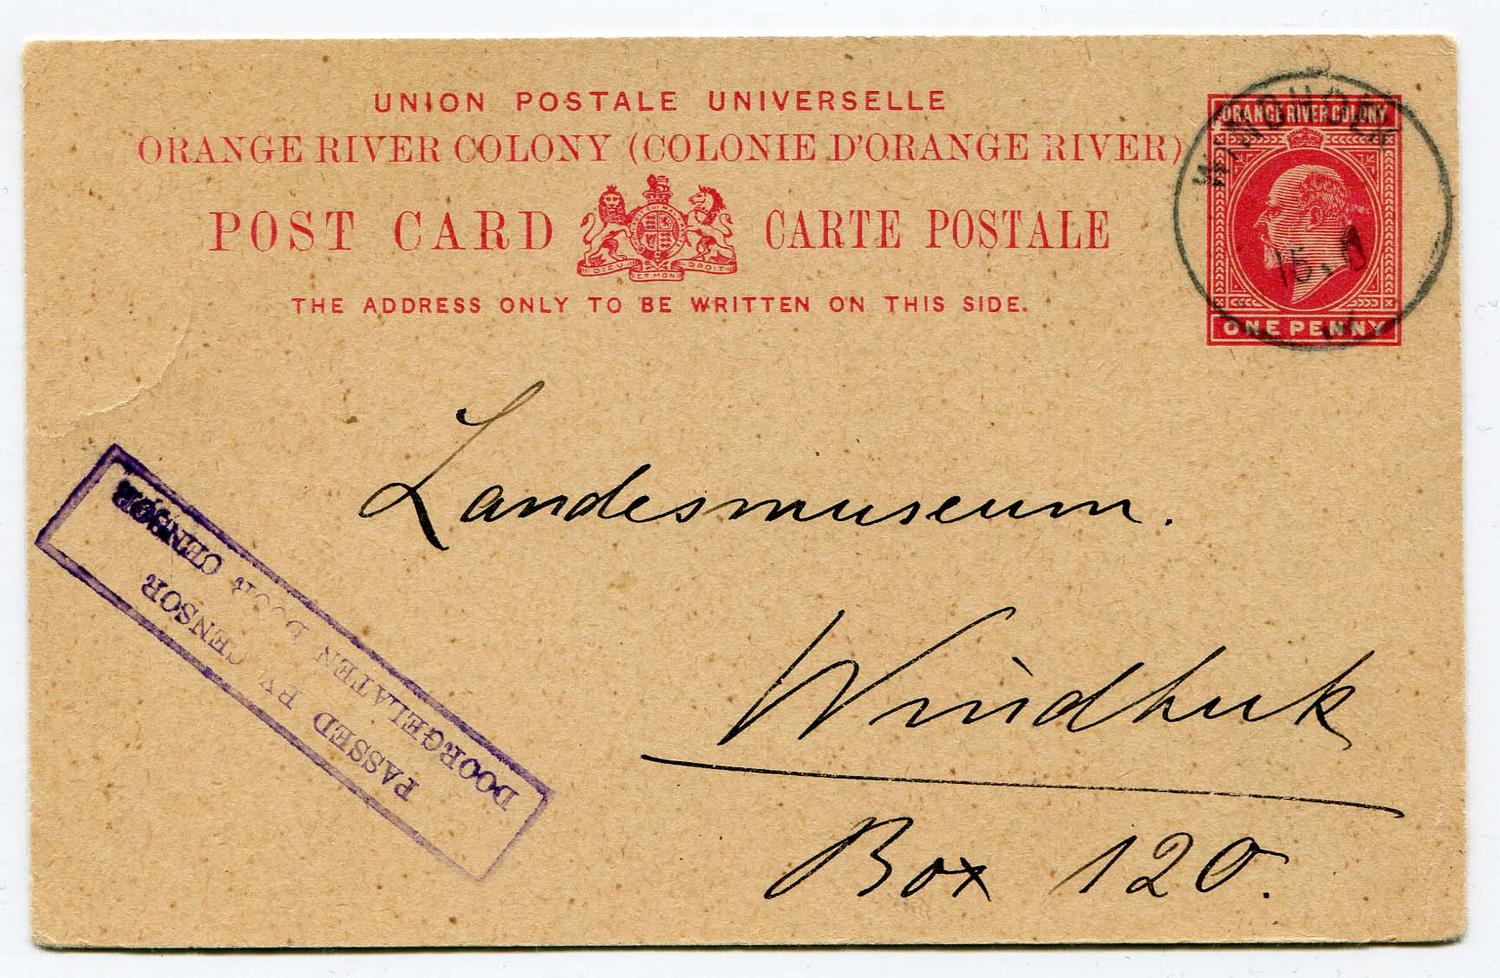 UNION POSTALE UNIVERSELLE
ORANGE RIVER COLONY (COLONIE D'ORANGE RIVER)
POST CARD CARTE POSTALE
DIEU ET MON DROIT
THE ADDRESS ONLY TO BE WRITTEN ON THIS SIDE.
ORANGE RIVER COLONY
ONE PENNY
WINDHOEK
Landesmuseum.
Windhuk
Box 120.
PASSED BY CENSOR
DOORGELATEN DOOR CENSOR